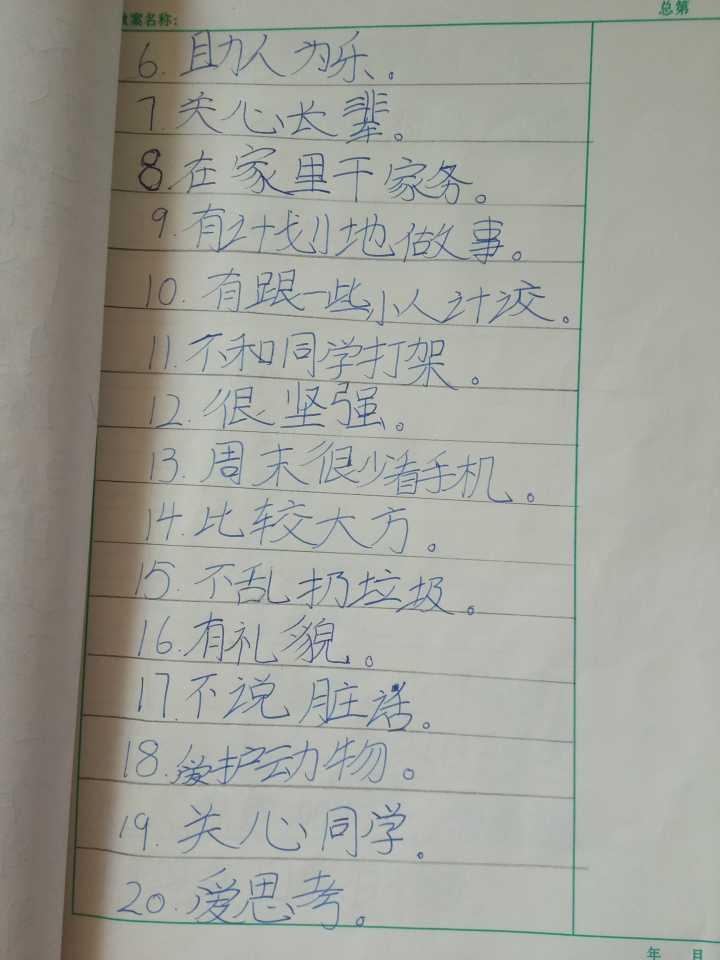 教案名称:
总第
6. 助人为乐。
7. 关心长辈。
8. 在家里干家务。
9. 有计划地做事。
10. 有跟一些小人计较。
11. 不和同学打架。
12. 很坚强。
13. 周末很少看手机。
14. 比较大方。
15. 不乱扔垃圾。
16. 有礼貌。
17. 不说脏话。
18. 爱护动物。
19. 关心同学。
20. 爱思考。
年 月